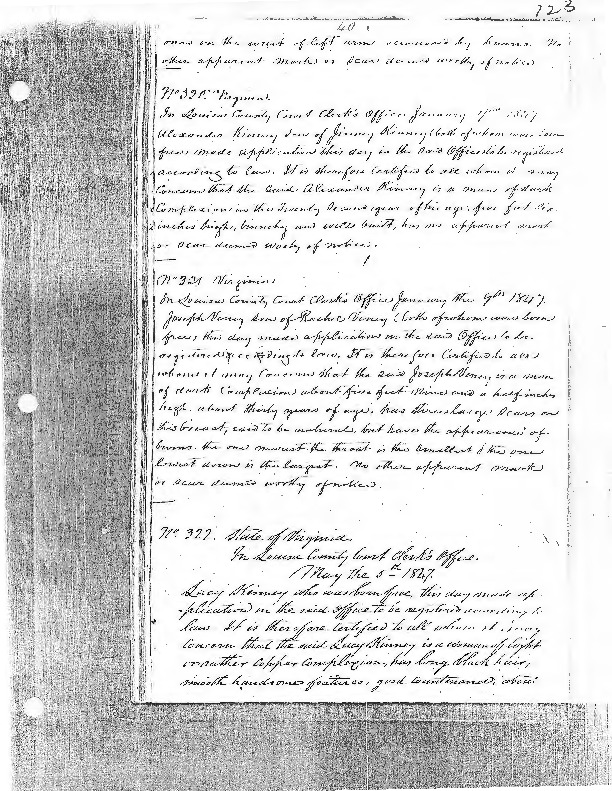 123
40
ones on the wrist of left arm occasioned by burns. No
other apparent mark or scar deemed worthy of notice
No 320. Virginia
In Louisa County Court Clerk's Office January 1847
Alexander Kinney Son of Jinney Kinney (both of whom was born
free) made application this day in the said Office to be registered
according to law. It is therefore Certified to all whom it may
Concern that the said Alexander Kinney is a man of dark
Complexion in the Twenty Second year of his age, five feet six
inches high, and well built, has no apparent mark
or Scar deemed worthy of notice.
No 321 Virginia
In Louisa County Court Clerk's Office January the 9th 1847.
Joseph Veney Son of Rachel Veney (both of whom was born
free) this day made application in the said Office to be
registered according to law. It is therefore Certified to all
whom it may Concern that the said Joseph Veney is a man
of dark Complexion about five feet Nine and a half inches
high, about thirty years of age, has three large Scars on
his breast, said to be natural, but have the appearance of
burns. the one nearest the throat is the smallest & the one
lowest down is the largest. No other apparent mark
or scar deemed worthy of notice.
No. 322. State of Virginia
In Louisa County Court Clerk's Office.
May the 5th 1847.
Lucy Kinney who was born free, this day made ap-
plication in the said office to be registered according to
law. It is therefore certified to all whom it may
concern that the said Lucy Kinney is a woman of light
or rather Copper Complexion, has long black hair,
smooth handsome features, good countenance, about